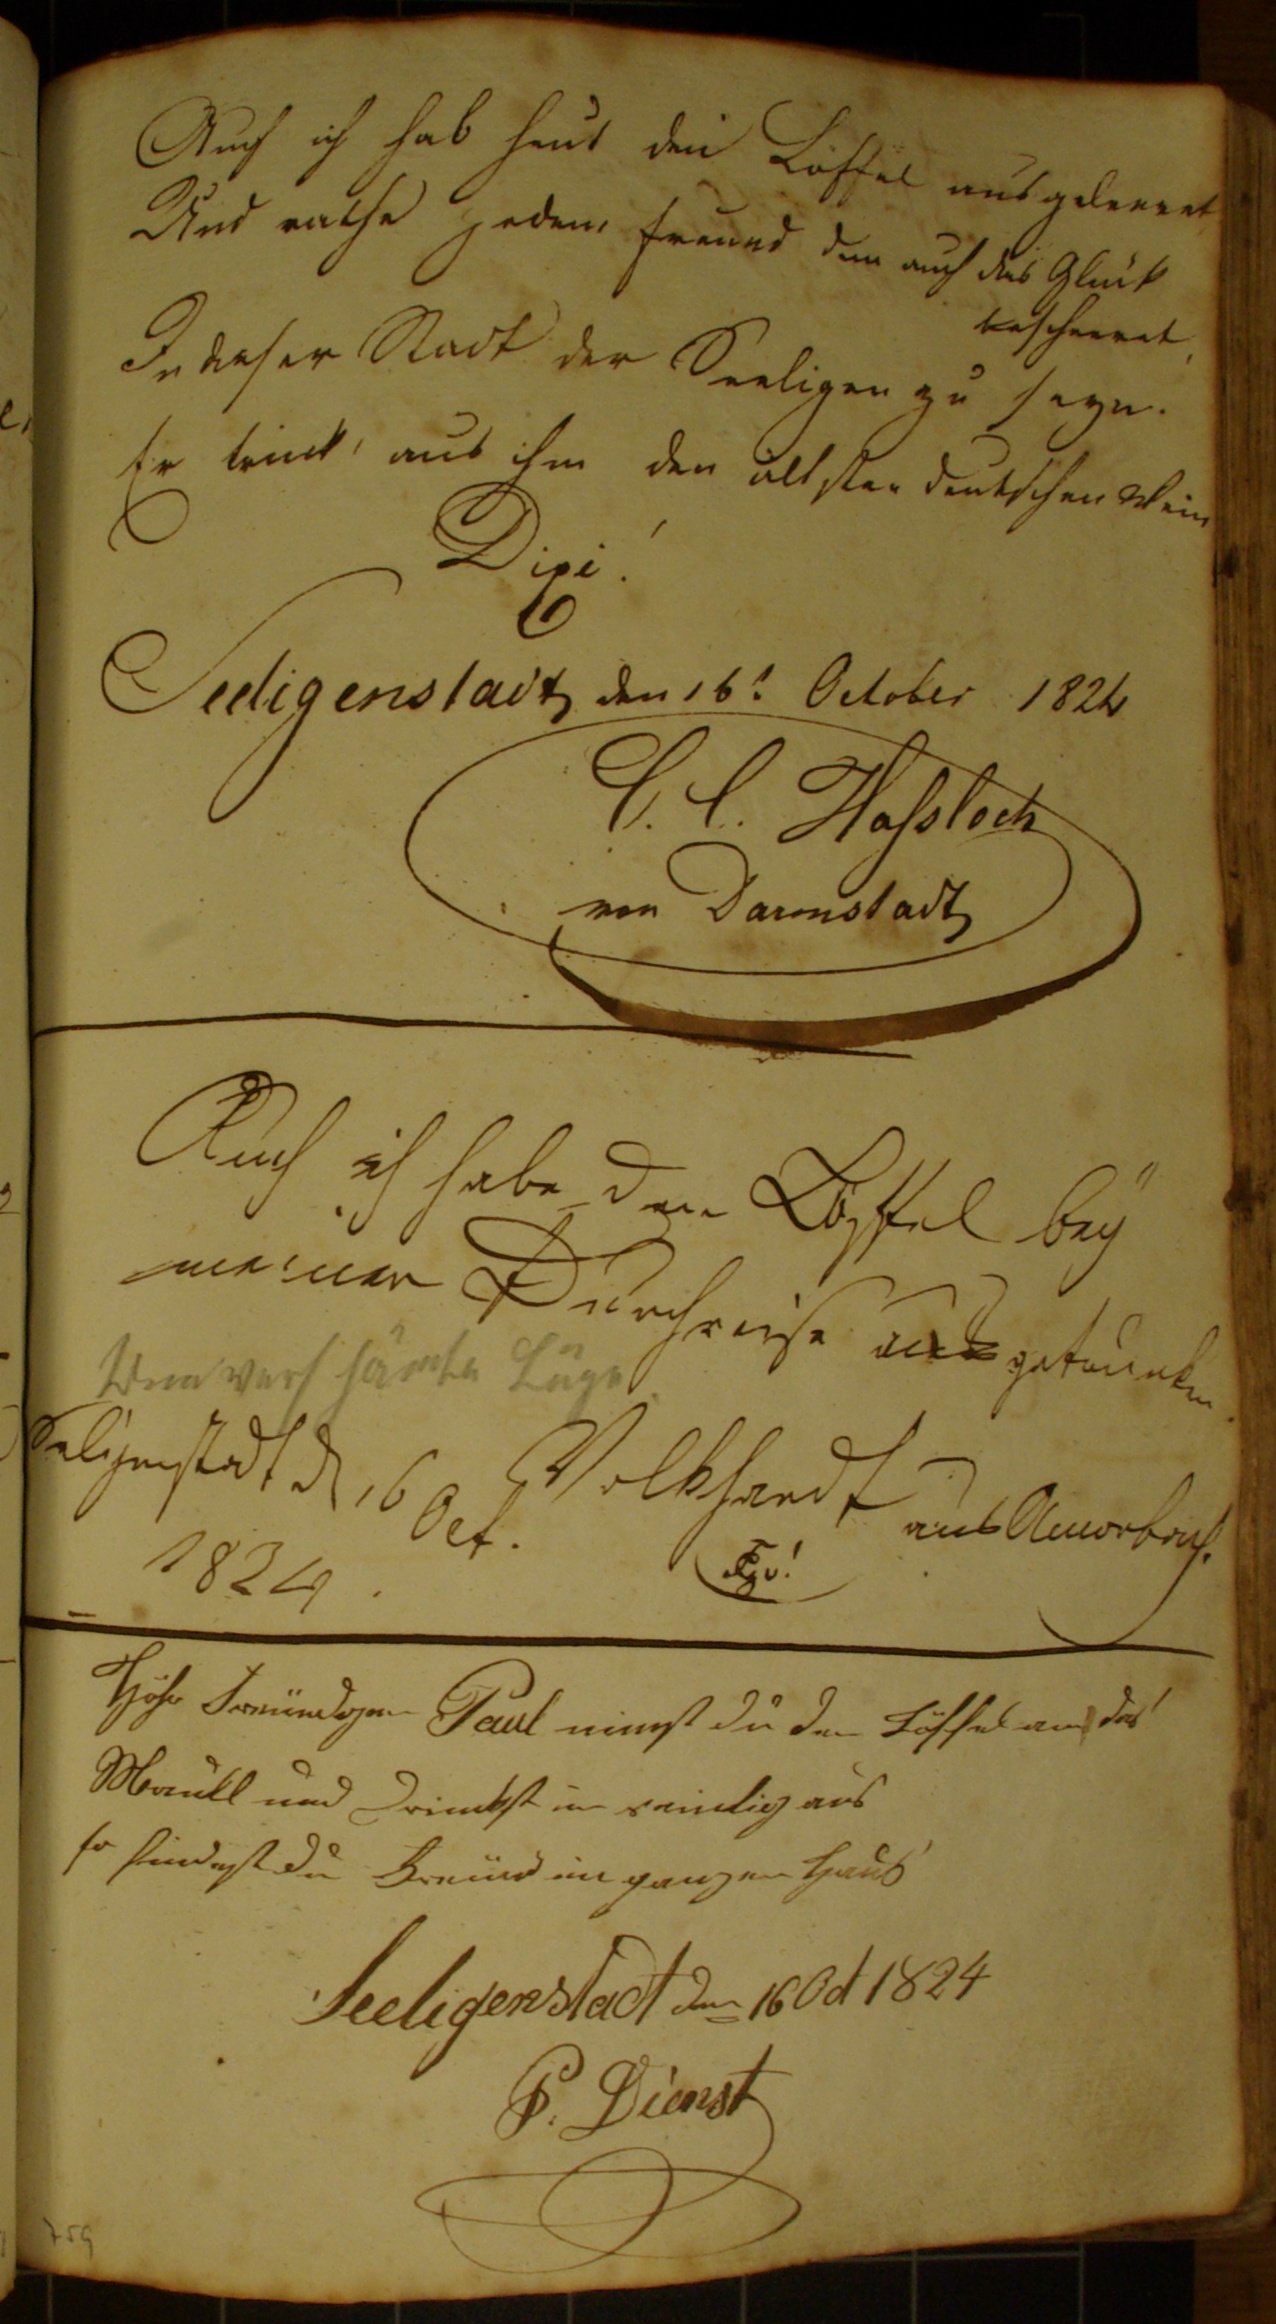 Auch ich hab heut den Löffel ausgeleeret
Und rathe jedem Freund dem auch das Glück
bescheeret,
In dieser Stadt der Seeligen zu seyn.
Er trink' aus ihm den ältsten deutschen Wein
Dixi!
Seeligenstadt den 16t October 1824
C. C. Hassloch
von Darmstadt
Auch ich habe den Löffel bey
meiner Durchreise ausgetrunken.
Unverschämte Lüge.
Seligenstadt d 16 Oct. Volkhardt aus Amorbach.
1824.
Höhr Freundgen Paul nimst du den Löffel an das
Maull und Drinkst im reindig aus
so findest du Freund im ganzen Haus
Seeligenstadt den 16 Oct 1824
P. Dienst
759